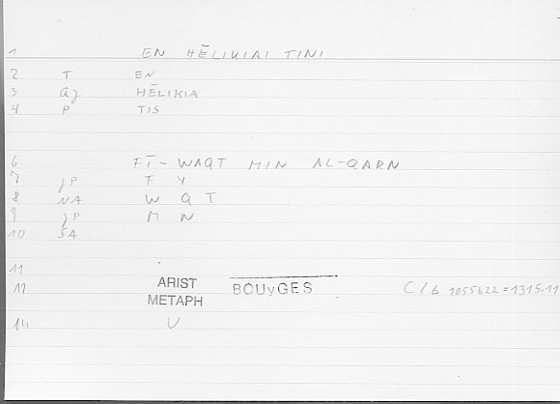 1 EN HĒLIKIAI TINI
2 T EN
3 aj HĒLIKIA
4 P TIS
6 FĪ-WAQT MIN AL-QARN
7 jP F Y
8 NA W Q T
9 jP M N
10 SA
11
12 ARIST METAPH BOUyGES C/6 1055b22=1315.11
14 U